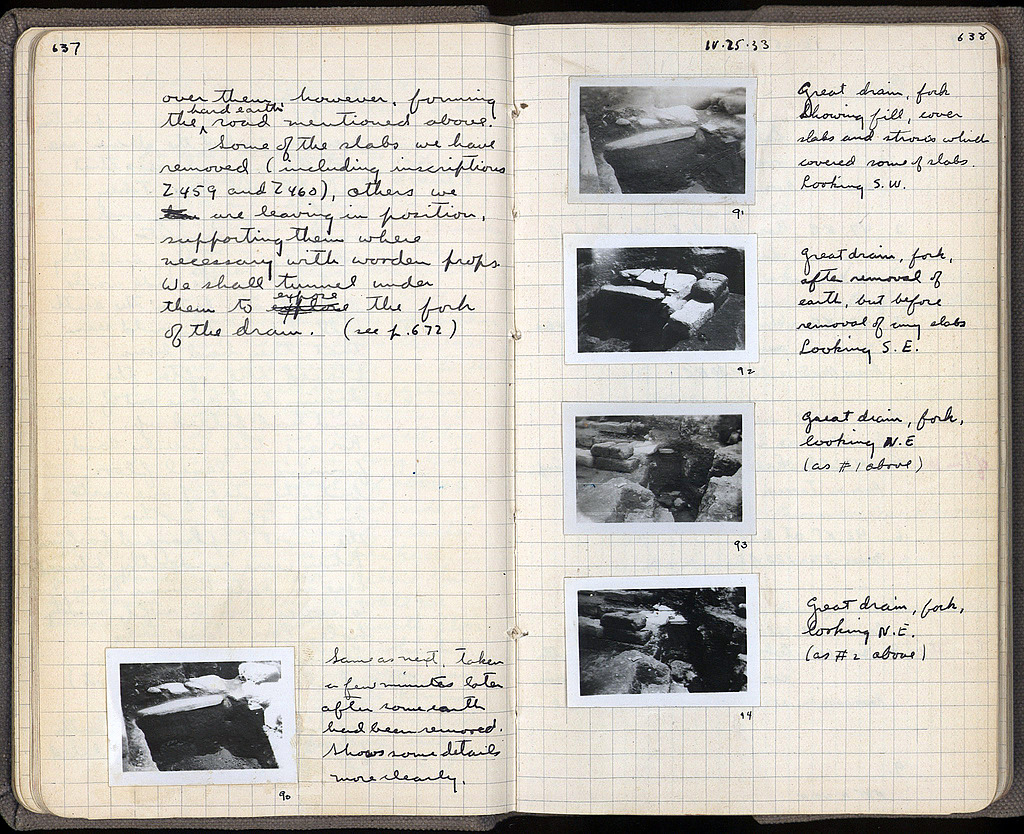 637
over them, however, forming
hard earth
the road mentioned above.
Some of the slabs we have
removed (including inscriptions
Z 459 and Z 460), others we
are leaving in position,
supporting them where
necessary with wooden props.
We shall tunnel under
expose
them to explore the fork
of the drain. (see p. 672)
Same as next, taken
a few minutes later
after some earth
had been removed.
Shows some details
more clearly.
90
IV.25.33
638
Great drain, fork
Showing fill, cover
slabs and stones which
covered some of slabs.
Looking S.W.
91
Great drain, fork,
after removal of
earth, but before
removal of any slabs
Looking S.E.
92
Great drain, fork,
looking N.E
(as #1 above)
93
Great drain, fork,
looking N.E.
(as #2 above)
94